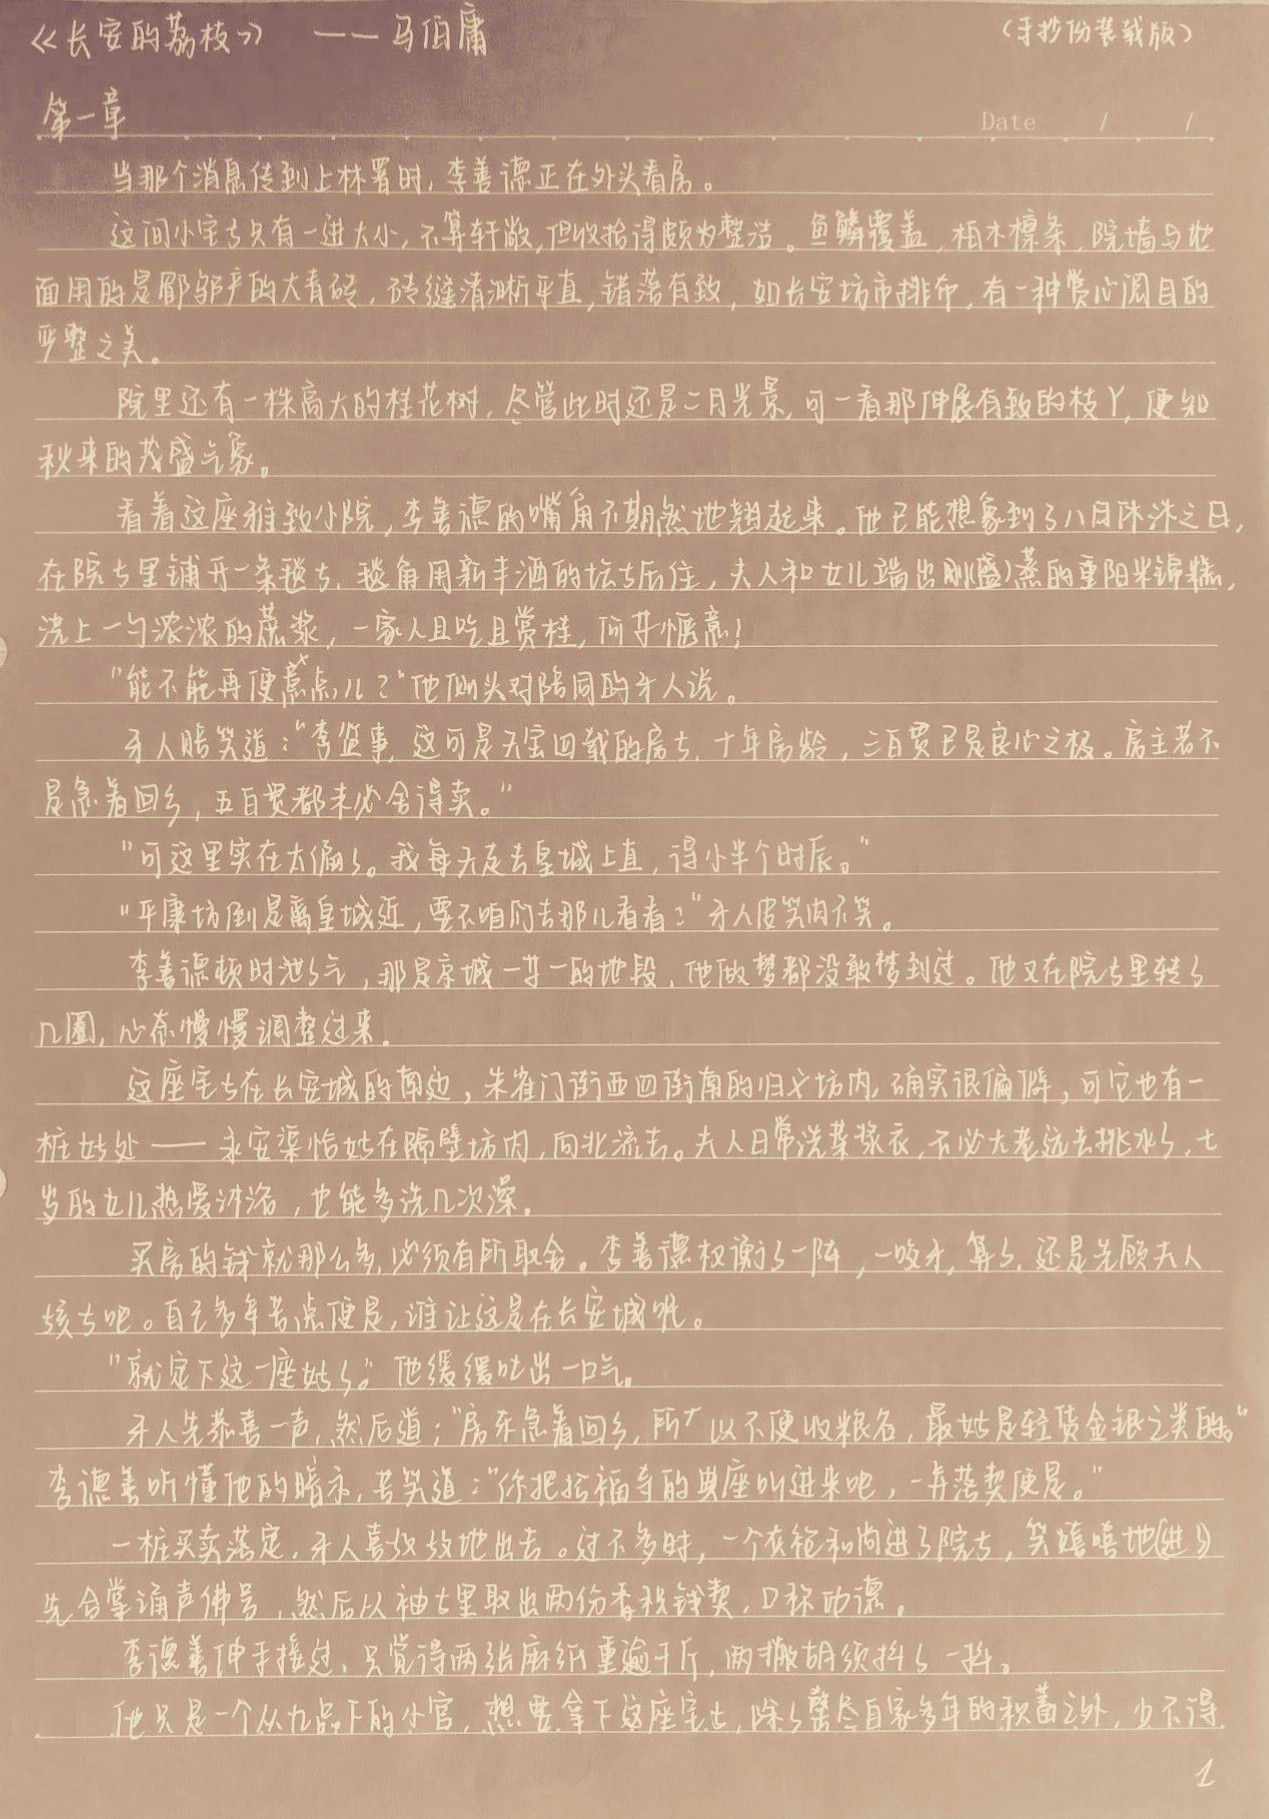 《长安的荔枝》 ——马伯庸 （手抄份装载版）
第一章
Date / /
当那个消息传到上林署时，李善德正在外头看房。
这间小宅子只有一进大小，不算轩敞，但收拾得颇为整洁。鱼鳞覆盖，柏木檩条，院墙与地
面用的是郿邬产的大青砖，砖缝清淅平直，错落有致，如长安坊市排布，有一种赏心阅目的
严整之美。
院里还有一株高大的桂花树，尽管此时还是二月光景，可一看那伸展有致的枝丫，便知
秋来的茂盛气象。
看着这座雅致小院，李善德的嘴角不期然地翘起来。他已能想象到了八月休沐之日，
在院子里铺开一条毯子，毯角用新丰酒的坛子压住，夫人和女儿端出刚(盛)蒸的重阳米锦糕，
浇上一勺浓浓的蔗浆，一家人且吃且赏桂，何等惬意！
"能不能再便点儿？"他侧头对陪同的牙人说。
牙人赔笑道："李监事，这可是天宝四载的房子，十年房龄，三百贯已是良心之极。房主若不
是急着回乡，五百贯都未必舍得卖。"
"可这里实在太偏了。我每天走去皇城上直，得小半个时辰。"
"平康坊倒是离皇城近，要不咱们去那儿看看？"牙人皮笑肉不笑。
李善德顿时泄了气，那是京城一等一的地段，他做梦都没敢梦到过。他又在院子里转了
几圈，心态慢慢调整过来。
这座宅子在长安城的南边，朱雀门街西四街南的归义坊内，确实很偏僻，可它也有一
桩好处——永安渠恰好在隔壁坊内，向北流去。夫人日常洗菜浆衣，不必大老远去挑水了，七
岁的女儿热爱沐浴，也能多洗几次澡。
买房的钱就那么多，必须有所取舍。李善德权衡了一阵，一咬牙，算了，还是先顾夫人
孩子吧。自己多年苦点便是，谁让这是在长安城呢。
"就定下这一座好了。"他缓缓吐出一口气。
牙人先恭喜一声，然后道："房东急着回乡，所以不便收粮名，最好是轻货金银之类的。"
李德善听懂他的暗示，苦笑道："你把招福寺的典座叫进来吧，一并落契便是。"
一桩买卖落定，牙人喜孜孜地出去。过不多时，一个灰袍和尚进了院子，笑嘻嘻地(进了)
先合掌诵声佛号，然后从袖子里取出两份香积钱契，口称功德。
李德善伸手接过，只觉得两张麻纸重逾千斤，两撇胡须抖了一抖。
他只是一个从九品下的小官，想要拿下这座宅子，除了罄尽自家多年的积蓄之外，少不得
1